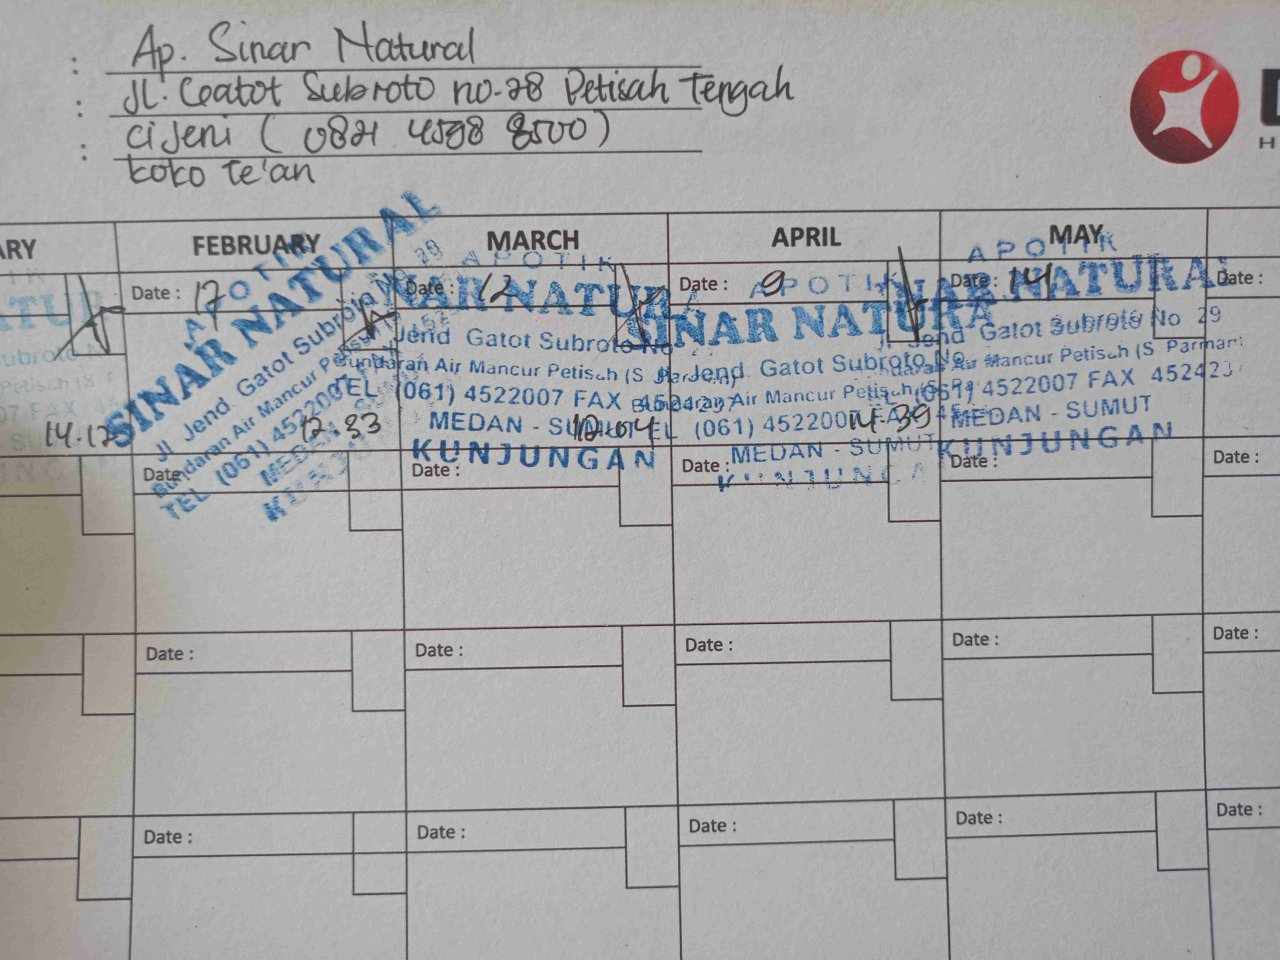 : Ap. Sinar Natural
: JL. Gatot Subroto no.28 Petisah Tengah
: ci Jeni ( 0821 4598 8500)
koko te'an
ARY FEBRUARY MARCH APRIL MAY
Date : 17 Date : 12 Date : 9 Date : 14 Date :
APOTIK
SINAR NATURAL
Jl Jend Gatot Subroto No 29
Bundaran Air Mancur Petisah
TEL (061) 4522007
MEDAN
12.33
APOTIK
NAR NATURA
Jend Gatot Subroto No
Bundaran Air Mancur Petisah (S Parman)
TEL (061) 4522007 FAX 4524237
MEDAN - SUMUT
KUNJUNGAN
12.04
APOTIK
SINAR NATURA
Jend Gatot Subroto No
Bundaran Air Mancur Petisah (S Pa
TEL (061) 4522007 FAX 45
MEDAN - SUMUT
14.39
APOTIK
NATURAL
Jend Gatot Subroto No 29
Air Mancur Petisah (S Parman
(061) 4522007 FAX 452423
MEDAN - SUMUT
KUNJUNGAN
14.17
Date Date : Date : Date : Date :
Date : Date : Date : Date : Date :
Date : Date : Date : Date : Date :